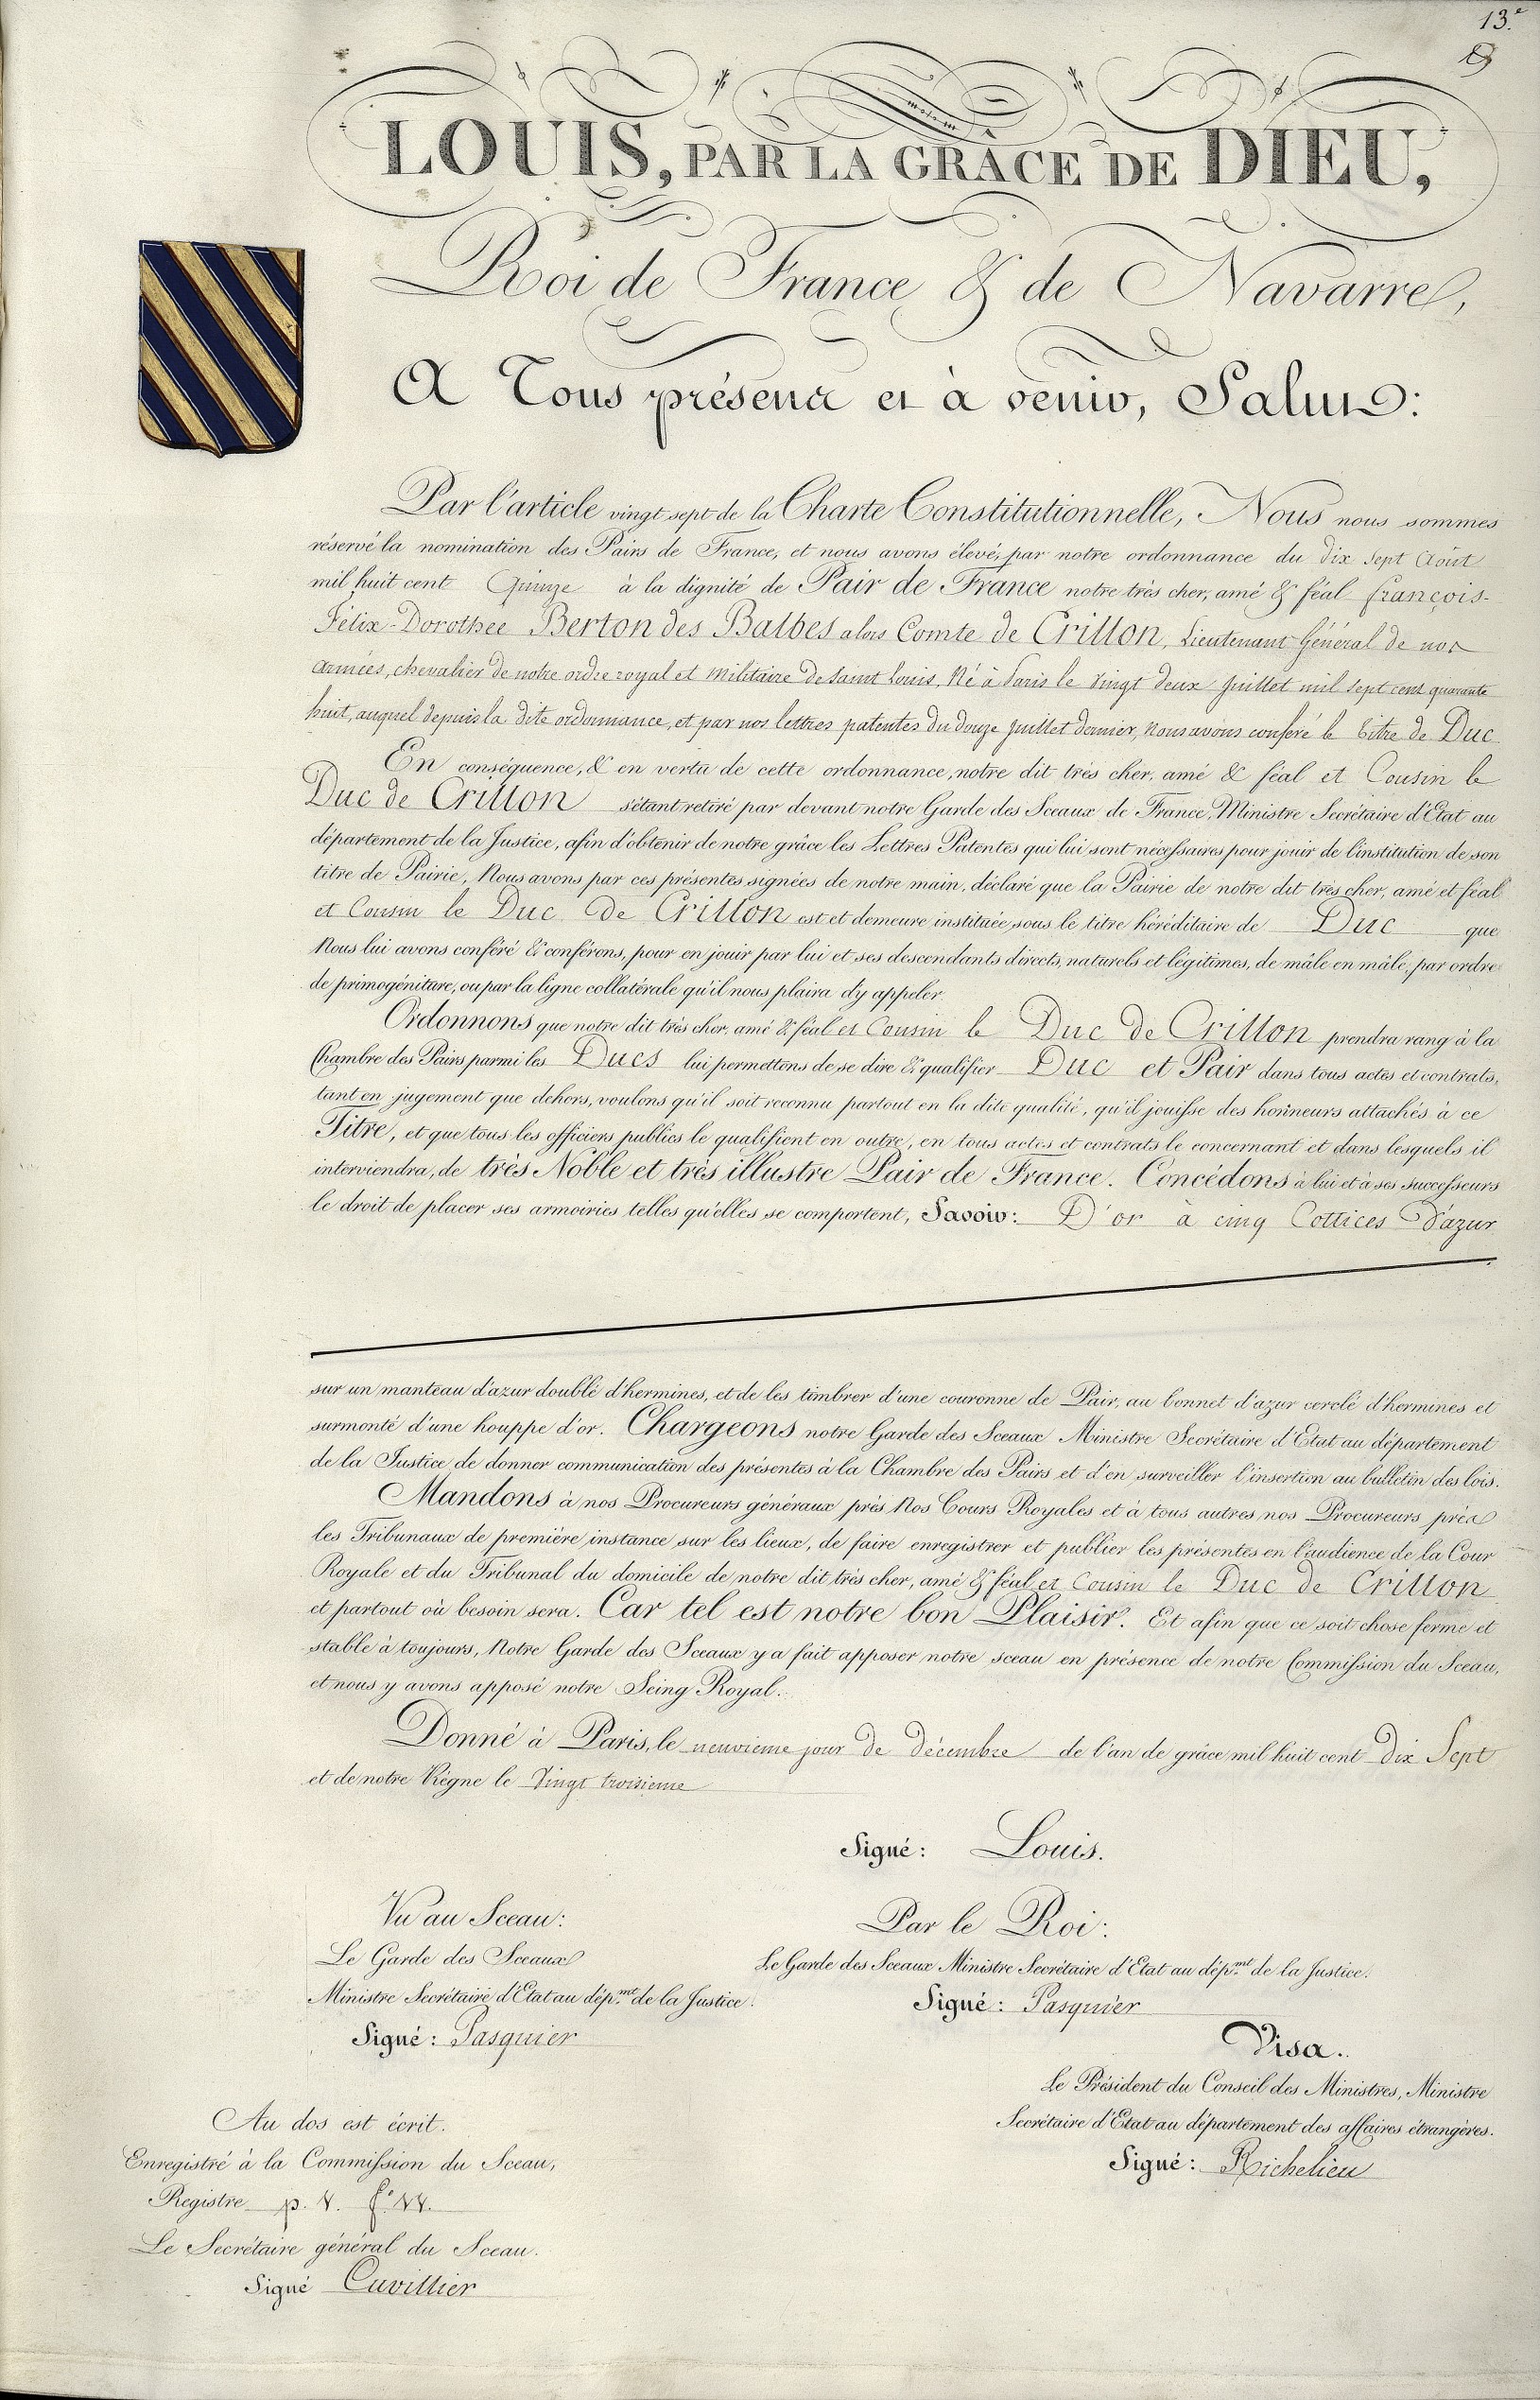 13.e
LOUIS, PAR LA GRÂCE DE DIEU,
Roi de France & de Navarre,
A Tous présens et à venir, Salut:
Par l'article vingt sept de la Charte Constitutionnelle, Nous nous sommes
réservé la nomination des Pairs de France, et nous avons élevé, par notre ordonnance du dix sept Août
mil huit cent Quinze à la dignité de Pair de France notre très cher, amé & féal françois-
Félix-Dorothée Berton des Balbes alors Comte de Crillon, Lieutenant Général de nos
armées, chevalier de notre ordre royal et militaire de Saint Louis, Né à Paris le vingt deux Juillet mil sept cent quarante
huit, auquel depuis la dite ordonnance, et par nos lettres patentes du douze Juillet dernier, Nous avons conféré le titre de Duc
En conséquence, & en vertu de cette ordonnance, notre dit très cher, amé & féal et Cousin le
Duc de Crillon s'étant retiré par devant notre Garde des Sceaux de France, Ministre Secrétaire d'Etat au
département de la Justice, afin d'obtenir de notre grâce les Lettres Patentes qui lui sont nécessaires pour jouir de l'institution de son
titre de Pairie, Nous avons par ces présentes signées de notre main, déclaré que la Pairie de notre dit très cher, amé et féal
et Cousin le Duc de Crillon est et demeure instituée, sous le titre héréditaire de Duc que
Nous lui avons conféré & conférons, pour en jouir par lui et ses descendants directs, naturels et légitimes, de mâle en mâle, par ordre
de primogéniture, ou par la ligne collatérale qu'il nous plaira d'y appeler.
Ordonnons que notre dit très cher, amé & féal et Cousin le Duc de Crillon prendra rang à la
Chambre des Pairs parmi les Ducs lui permettons de se dire & qualifier Duc et Pair dans tous actes et contrats,
tant en jugement que dehors, voulons qu'il soit reconnu partout en la dite qualité, qu'il jouisse des honneurs attachés à ce
Titre, et que tous les officiers publics le qualifient en outre, en tous actes et contrats le concernant et dans lesquels il
interviendra, de très Noble et très illustre Pair de France. Concédons à lui et à ses successeurs
le droit de placer ses armoiries telles qu'elles se comportent, Savoir: D'or à cinq Cottices D'azur
sur un manteau d'azur doublé d'hermines, et de les timbrer d'une couronne de Pair, au bonnet d'azur cerclé d'hermines et
surmonté d'une houppe d'or. Chargeons notre Garde des Sceaux Ministre Secrétaire d'Etat au département
de la Justice de donner communication des présentes à la Chambre des Pairs et d'en surveiller l'insertion au bulletin des lois.
Mandons à nos Procureurs généraux près Nos Cours Royales et à tous autres nos Procureurs près
les Tribunaux de première instance sur les lieux, de faire enregistrer et publier les présentes en l'audience de la Cour
Royale et du Tribunal du domicile de notre dit très cher, amé & féal et Cousin le Duc de Crillon
et partout où besoin sera. Car tel est notre bon Plaisir. Et afin que ce soit chose ferme et
stable à toujours, Notre Garde des Sceaux y a fait apposer notre sceau en présence de notre Commission du Sceau,
et nous y avons apposé notre Seing Royal.
Donné à Paris, le neuvieme jour de décembre de l'an de grâce mil huit cent dix Sept
et de notre Règne le Vingt troisieme
Signé: Louis.
Vu au Sceau:
Le Garde des Sceaux
Ministre Secrétaire d'Etat au dép.mt de la Justice.
Signé: Pasquier
Par le Roi:
Le Garde des Sceaux Ministre Secrétaire d'Etat au dép.mt de la Justice.
Signé: Pasquier
Visa.
Le Président du Conseil des Ministres, Ministre
Secrétaire d'Etat au département des affaires étrangères.
Signé: Richelieu
Au dos est écrit.
Enregistré à la Commission du Sceau,
Registre p. f.o
Le Secrétaire général du Sceau.
Signé Cuvillier